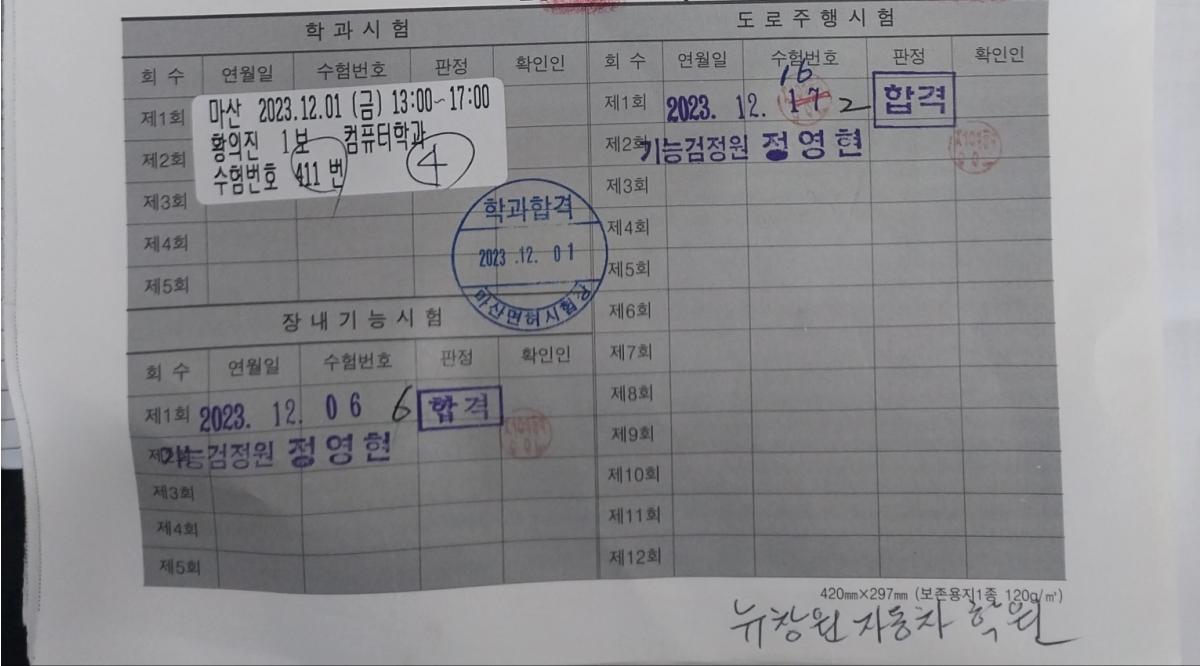 학 과 시 험
회 수 연월일 수험번호 판정 확인인
제1회
제2회
제3회
제4회
제5회
마산 2023.12.01 (금) 13:00~17:00
황의진 1보 컴퓨터학과
수험번호 411 번 4
학과합격
2023 .12. 01
마산면허시험장
장 내 기 능 시 험
회 수 연월일 수험번호 판정 확인인
제1회 2023. 12. 06 6 합격
기능검정원 정영현
제3회
제4회
제5회
도 로 주 행 시 험
회 수 연월일 수험번호 판정 확인인
16
제1회 2023. 12. 17 2 합격
제2회 기능검정원 정영현
제3회
제4회
제5회
제6회
제7회
제8회
제9회
제10회
제11회
제12회
420㎜×297㎜ (보존용지1종 120g/㎡)
뉴창원 자동차 학원